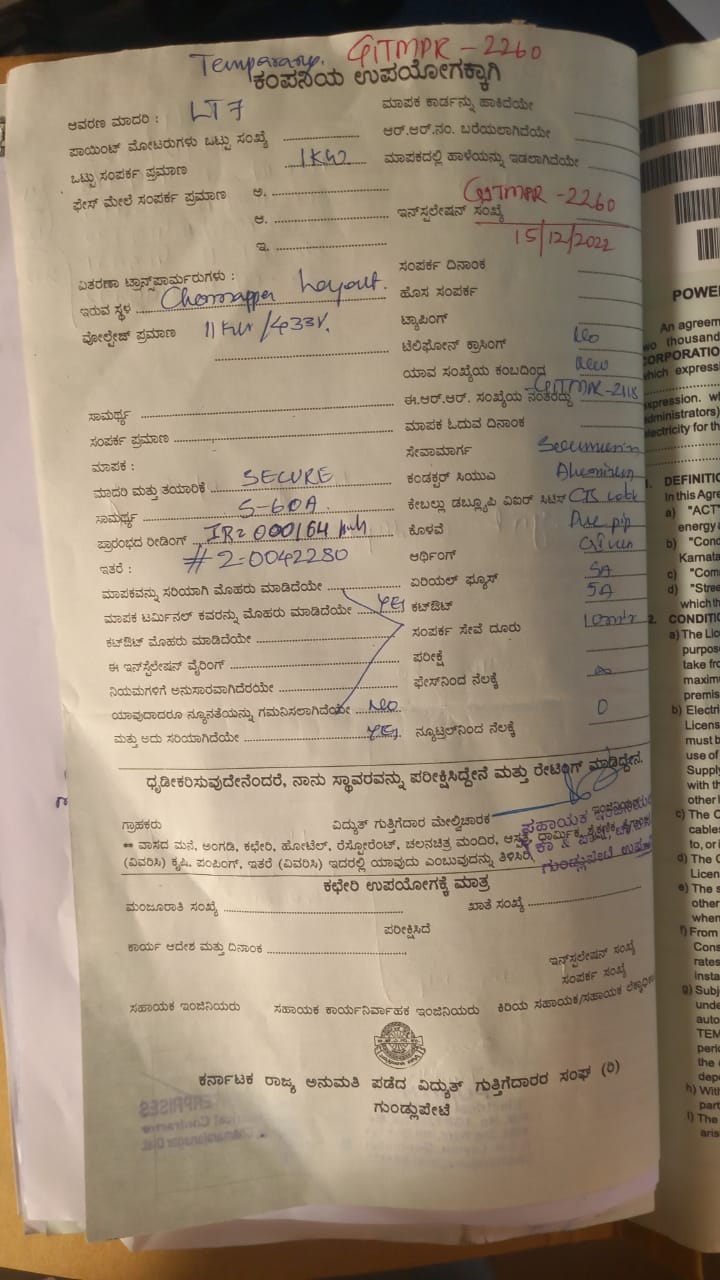 Temporary. GITMPR - 2260
ಕಂಪನಿಯ ಉಪಯೋಗಕ್ಕಾಗಿ
ಆವರಣ ಮಾದರಿ : LT7
ಮಾಪಕ ಕಾರ್ಡನ್ನು ಹಾಕಿದೆಯೇ
ಪಾಯಿಂಟ್ ಮೋಟರುಗಳು ಒಟ್ಟು ಸಂಖ್ಯೆ
ಆರ್.ಆರ್.ನಂ. ಬರೆಯಲಾಗಿದೆಯೇ
ಒಟ್ಟು ಸಂಪರ್ಕ ಪ್ರಮಾಣ 1KW
ಮಾಪಕದಲ್ಲಿ ಹಾಳೆಯನ್ನು ಇಡಲಾಗಿದೆಯೇ
ಫೇಸ್ ಮೇಲೆ ಸಂಪರ್ಕ ಪ್ರಮಾಣ ಅ.
ಆ.
ಇ.
GITMPR - 2260
ಇನ್‌ಸ್ಟಲೇಷನ್ ಸಂಖ್ಯೆ
15/12/2022
ವಿತರಣಾ ಟ್ರಾನ್ಸ್‌ಫಾರ್ಮರುಗಳು :
ಸಂಪರ್ಕ ದಿನಾಂಕ
ಇರುವ ಸ್ಥಳ Layout.
ಹೊಸ ಸಂಪರ್ಕ
ವೋಲ್ಟೇಜ್ ಪ್ರಮಾಣ 11KV/433V.
ಟ್ಯಾಪಿಂಗ್
ಟೆಲಿಫೋನ್ ಕ್ರಾಸಿಂಗ್ No
ಯಾವ ಸಂಖ್ಯೆಯ ಕಂಬದಿಂದ new
ಸಾಮರ್ಥ್ಯ
ಈ.ಆರ್.ಆರ್. ಸಂಖ್ಯೆಯ ನಂತರದ್ದು GITMPR-2118
ಸಂಪರ್ಕ ಪ್ರಮಾಣ
ಮಾಪಕ ಓದುವ ದಿನಾಂಕ
ಮಾಪಕ :
ಸೇವಾಮಾರ್ಗ
ಮಾದರಿ ಮತ್ತು ತಯಾರಿಕೆ SECURE
ಕಂಡಕ್ಟರ್ ಸಿಯುಎ
ಸಾಮರ್ಥ್ಯ 5-60A
ಕೇಬಲ್ಲು ಡಬ್ಲ್ಯೂಪಿ ವಿಐರ್ ಸಿಟಿಸ್
ಪ್ರಾರಂಭದ ರೀಡಿಂಗ್ IR=000164 kwh
ಕೊಳವೆ
ಇತರೆ : # 2-0042280
ಆರ್ಥಿಂಗ್ Given
ಮಾಪಕವನ್ನು ಸರಿಯಾಗಿ ಮೊಹರು ಮಾಡಿದೆಯೇ
ಏರಿಯಲ್ ಫ್ಯೂಸ್ 5A
ಮಾಪಕ ಟರ್ಮಿನಲ್ ಕವರನ್ನು ಮೊಹರು ಮಾಡಿದೆಯೇ YES
ಕಟ್‌ಔಟ್ 5A
ಕಟ್‌ಔಟ್ ಮೊಹರು ಮಾಡಿದೆಯೇ
ಸಂಪರ್ಕ ಸೇವೆ ದೂರು
ಈ ಇನ್‌ಸ್ಟೆಲೇಷನ್ ವೈರಿಂಗ್
ಪರೀಕ್ಷೆ
ನಿಯಮಗಳಿಗೆ ಅನುಸಾರವಾಗಿದೆರಯೇ
ಫೇಸ್‌ನಿಂದ ನೆಲಕ್ಕೆ ∞
ಯಾವುದಾದರೂ ನ್ಯೂನತೆಯನ್ನು ಗಮನಿಸಲಾಗಿದೆಯೇ NO
ಮತ್ತು ಅದು ಸರಿಯಾಗಿದೆಯೇ YES
ನ್ಯೂಟ್ರಲ್‌ನಿಂದ ನೆಲಕ್ಕೆ 0
ಧೃಡೀಕರಿಸುವುದೇನೆಂದರೆ, ನಾನು ಸ್ಥಾವರವನ್ನು ಪರೀಕ್ಷಿಸಿದ್ದೇನೆ ಮತ್ತು ರೇಟಿಂಗ್ ಮಾಡಿದ್ದೇನೆ.
ಗ್ರಾಹಕರು ವಿದ್ಯುತ್ ಗುತ್ತಿಗೆದಾರ ಮೇಲ್ವಿಚಾರಕ
** ವಾಸದ ಮನೆ, ಅಂಗಡಿ, ಕಛೇರಿ, ಹೋಟೆಲ್, ರೆಸ್ಟೋರೆಂಟ್, ಚಲನಚಿತ್ರ ಮಂದಿರ, ಆಸ್ಪತ್ರೆ, ಧಾರ್ಮಿಕ,
(ವಿವರಿಸಿ) ಕೃಷಿ, ಪಂಪಿಂಗ್, ಇತರೆ (ವಿವರಿಸಿ) ಇದರಲ್ಲಿ ಯಾವುದು ಎಂಬುವುದನ್ನು ತಿಳಿಸಿರಿ
ಕಛೇರಿ ಉಪಯೋಗಕ್ಕೆ ಮಾತ್ರ
ಮಂಜೂರಾತಿ ಸಂಖ್ಯೆ
ಖಾತೆ ಸಂಖ್ಯೆ
ಪರೀಕ್ಷಿಸಿದೆ
ಕಾರ್ಯ ಆದೇಶ ಮತ್ತು ದಿನಾಂಕ
ಇನ್‌ಸ್ಟಲೇಷನ್ ಸಂಖ್ಯೆ
ಸಂಪರ್ಕ ಸಂಖ್ಯೆ
ಸಹಾಯಕ ಇಂಜಿನಿಯರು ಸಹಾಯಕ ಕಾರ್ಯನಿರ್ವಾಹಕ ಇಂಜಿನಿಯರು ಕಿರಿಯ ಸಹಾಯಕ/ಸಹಾಯಕ
ಕರ್ನಾಟಕ ರಾಜ್ಯ ಅನುಮತಿ ಪಡೆದ ವಿದ್ಯುತ್ ಗುತ್ತಿಗೆದಾರರ ಸಂಘ (ರಿ)
ಗುಂಡ್ಲುಪೇಟೆ
POWE
An agreem
two thousand
CORPORATIO
which express
expression. w
administrators)
electricity for th
1. DEFINITIO
In this Agre
a) "ACT
energy
b) "Cond
Karnata
c) "Com
d) "Stree
which th
2. CONDITIO
a) The Lic
purpos
take fro
maximu
premis
b) Electri
Licens
must b
use of
Supply
with th
other
c) The C
cable
to, or
d) The C
Licen
e) The s
other
when
f) From
Cons
rates
insta
g) Subj
unde
auto
TEM
peri
the
depo
h) With
part
i) The
aris